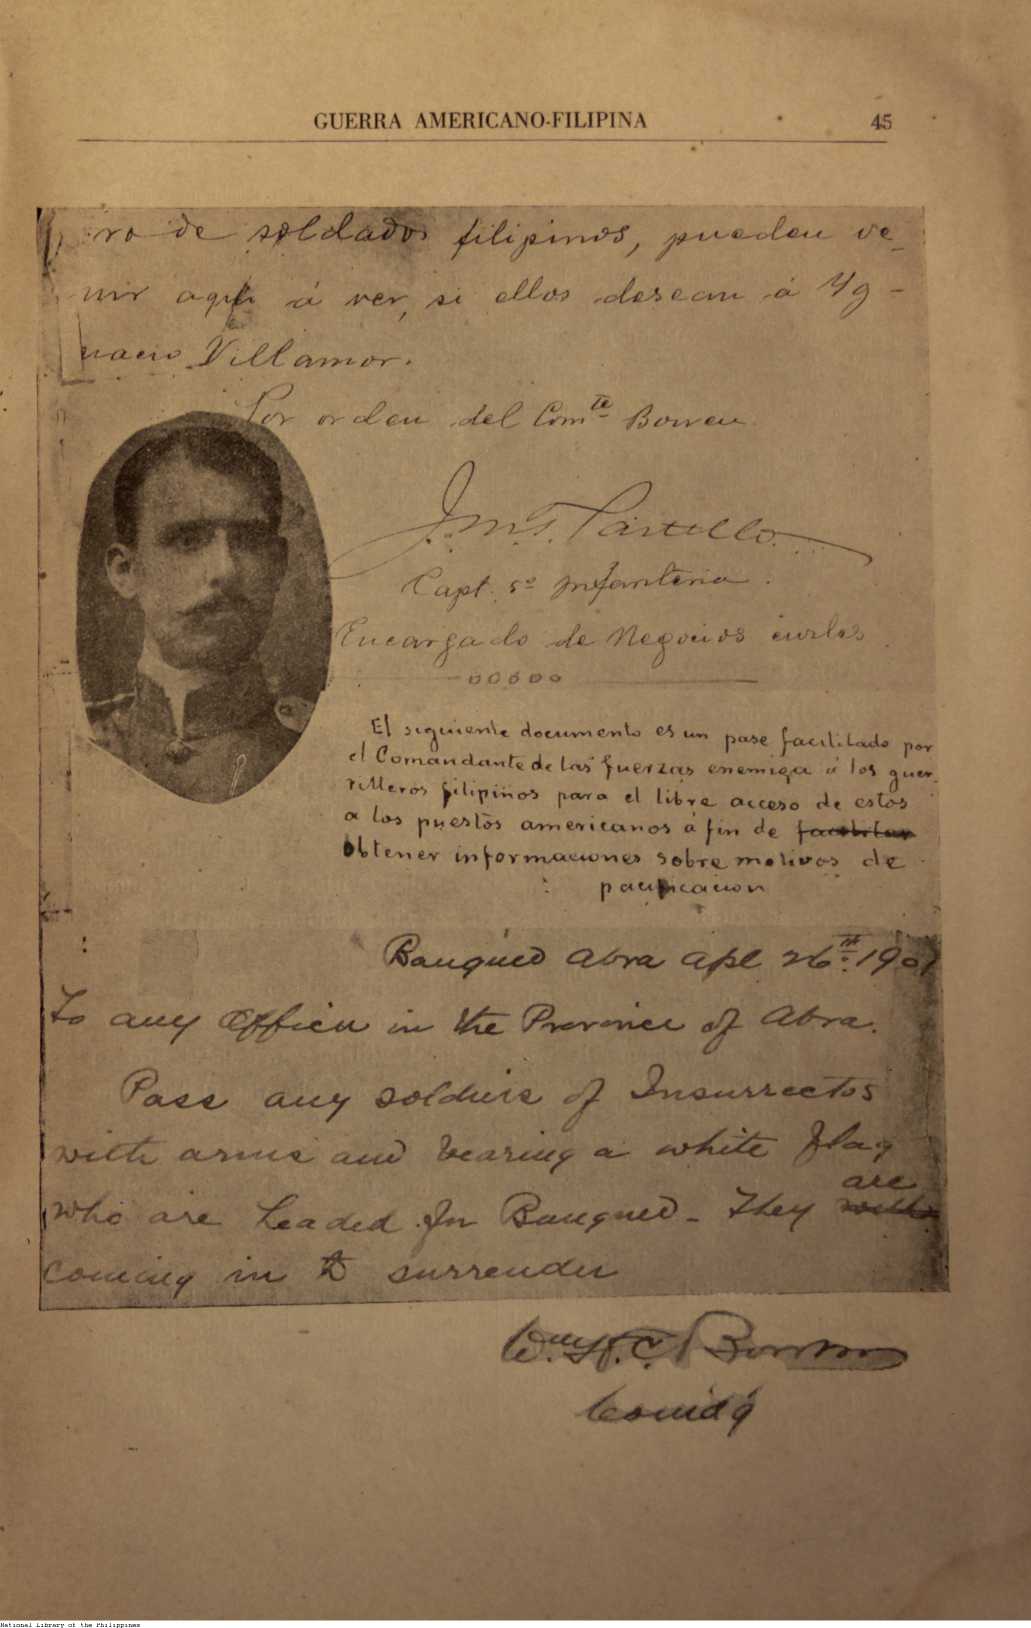 GUERRA AMERICANO-FILIPINA 45
ro de soldados filipinos, pueden ve-
nir aqui á ver, si ellos desean á Yg-
nacio Villamor.
Por orden del Comte Bowen
J. M. T. Partello
Capt. 5º Infanteria.
Encargado de Negocios civiles
El siguiente documento es un pase facilitado por
el Comandante de las fuerzas enemiga á los guer-
rilleros filipinos para el libre acceso de estos
a los puestos americanos á fin de facilitar
obtener informaciones sobre motivos de
pacificacion
Bangued Abra Apl 26th 1901
To any Officer in the Province of Abra.
Pass any soldiers of Insurrectos
with arms and bearing a white flag
who are headed for Bangued - They are
coming in to surrender
Wm. H. C. Bowen
Comdg
National Library of the Philippines